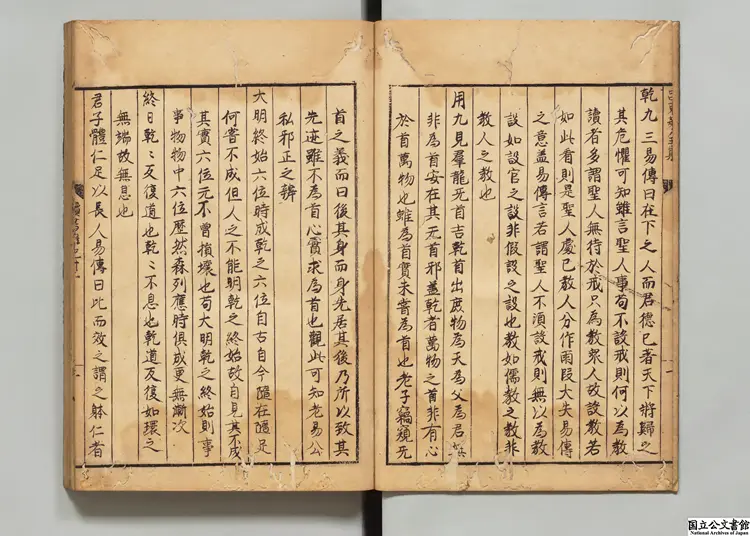 乾九三易傳曰在下之人而君德已著天下將歸之
其危懼可知雖言聖人事苟不設戒則何以為教
讀者多謂聖人無待於戒只為教眾人故設教若
如此看則是聖人處已教人分作兩段大失易傳
之意蓋易傳言若謂聖人不須設戒則無以為教
設如設官之設非假設之設也教如儒教之教非
教人之教也
用九見羣龍无首吉乾首出庶物為天為父為君
非為首安在其无首邪蓋乾者萬物之首非有心
於首萬物也雖為首實未嘗為首也老子竊窺无
首之義而曰後其身而身先居其後乃所以致其
先迹雖不為首心實求為首也觀此可知老易公
私邪正之辨
大明終始六位時成乾之六位自古自今隨在隨足
何嘗不成但人之不能明乾之終始故自見其不成
其實六位元不曾損壞也苟大明乾之終始則事
事物物中六位歷然森列應時俱成更無漸次
終日乾〻反復道也乾〻不息也乾道反復如環之
無端故無息也
君子體仁足以長人易傳曰比而效之謂之體仁者
國立公文書館
National Archives of Japan